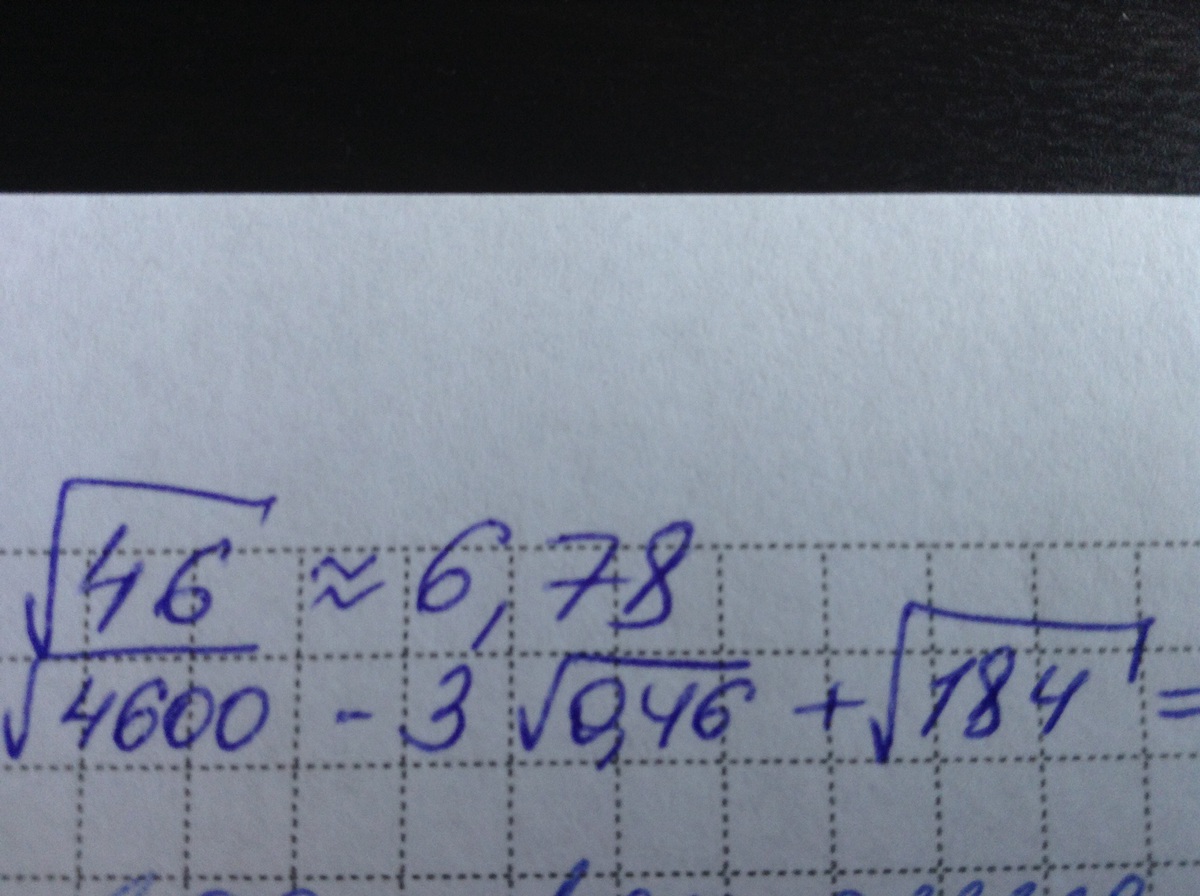 √46 ≈ 6,78
√4600 - 3√0,46 + √184 =